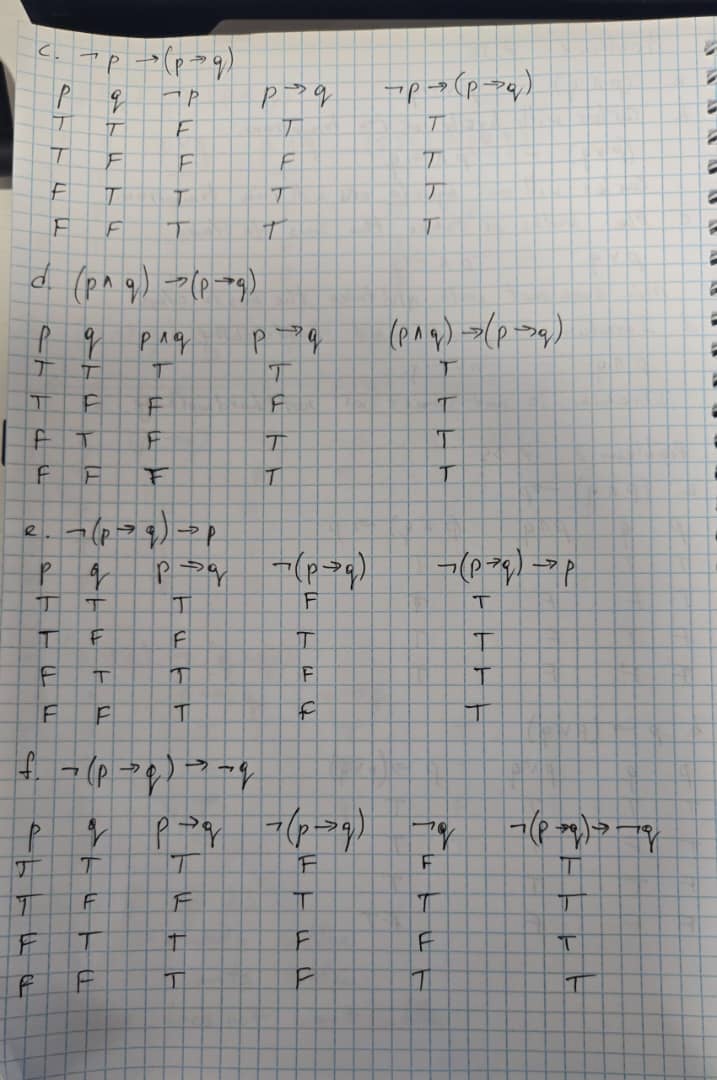 c. ¬p →(p→q)
p q ¬p p→q ¬p→(p→q)
T T F T T
T F F F T
F T T T T
F F T T T
d. (p∧q) →(p→q)
p q p∧q p→q (p∧q)→(p→q)
T T T T T
T F F F T
F T F T T
F F F T T
e. ¬(p→q)→p
p q p→q ¬(p→q) ¬(p→q)→p
T T T F T
T F F T T
F T T F T
F F T F T
f. ¬(p→q)→¬q
p q p→q ¬(p→q) ¬q ¬(p→q)→¬q
T T T F F T
T F F T T T
F T T F F T
F F T F T T